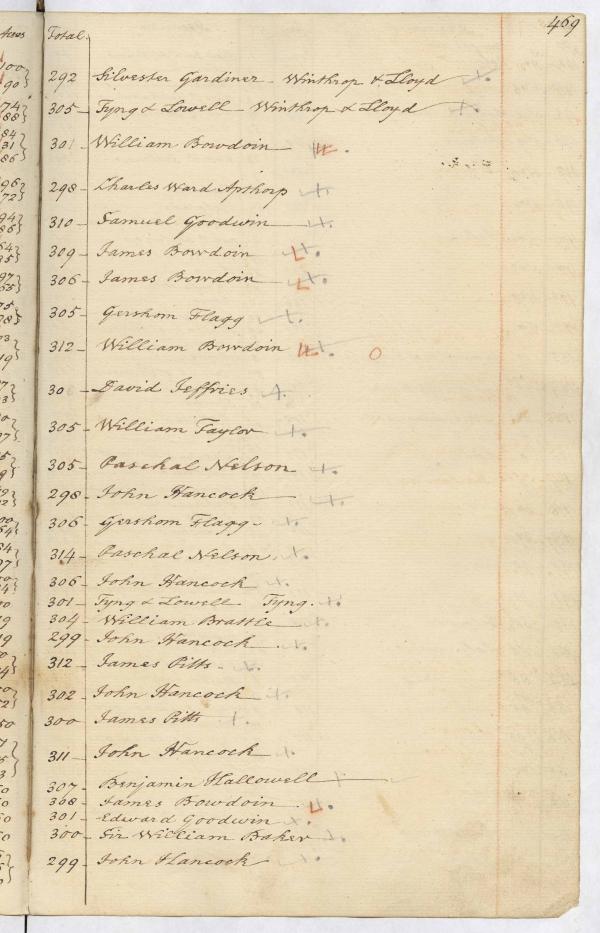 469
Acres Total.
100
90}
292 - Silvester Gardiner - Winthrop & Lloyd
74
88}
305 - Tyng & Lowell - Winthrop & Lloyd
84
31
86}
301 William Bowdoin
96
72}
298 - Charles Ward Apthorp
94
86}
310 - Samuel Goodwin
309 - James Bowdoin
306 - James Bowdoin
305 - Gershom Flagg
312 - William Bowdoin
30 David Jeffries
305 - William Taylor
305 - Paschal Nelson
298 - John Hancock
306 - Gershom Flagg -
314 - Paschal Nelson
306 - John Hancock
301 - Tyng & Lowell. Tyng.
304 - William Brattle
299 - John Hancock
312 - James Pitts
302 - John Hancock
300 - James Pitts
311 - John Hancock
307 - Benjamin Hallowell
308 - James Bowdoin
301 - Edward Goodwin
300 - Sir William Baker
299 - John Hancock